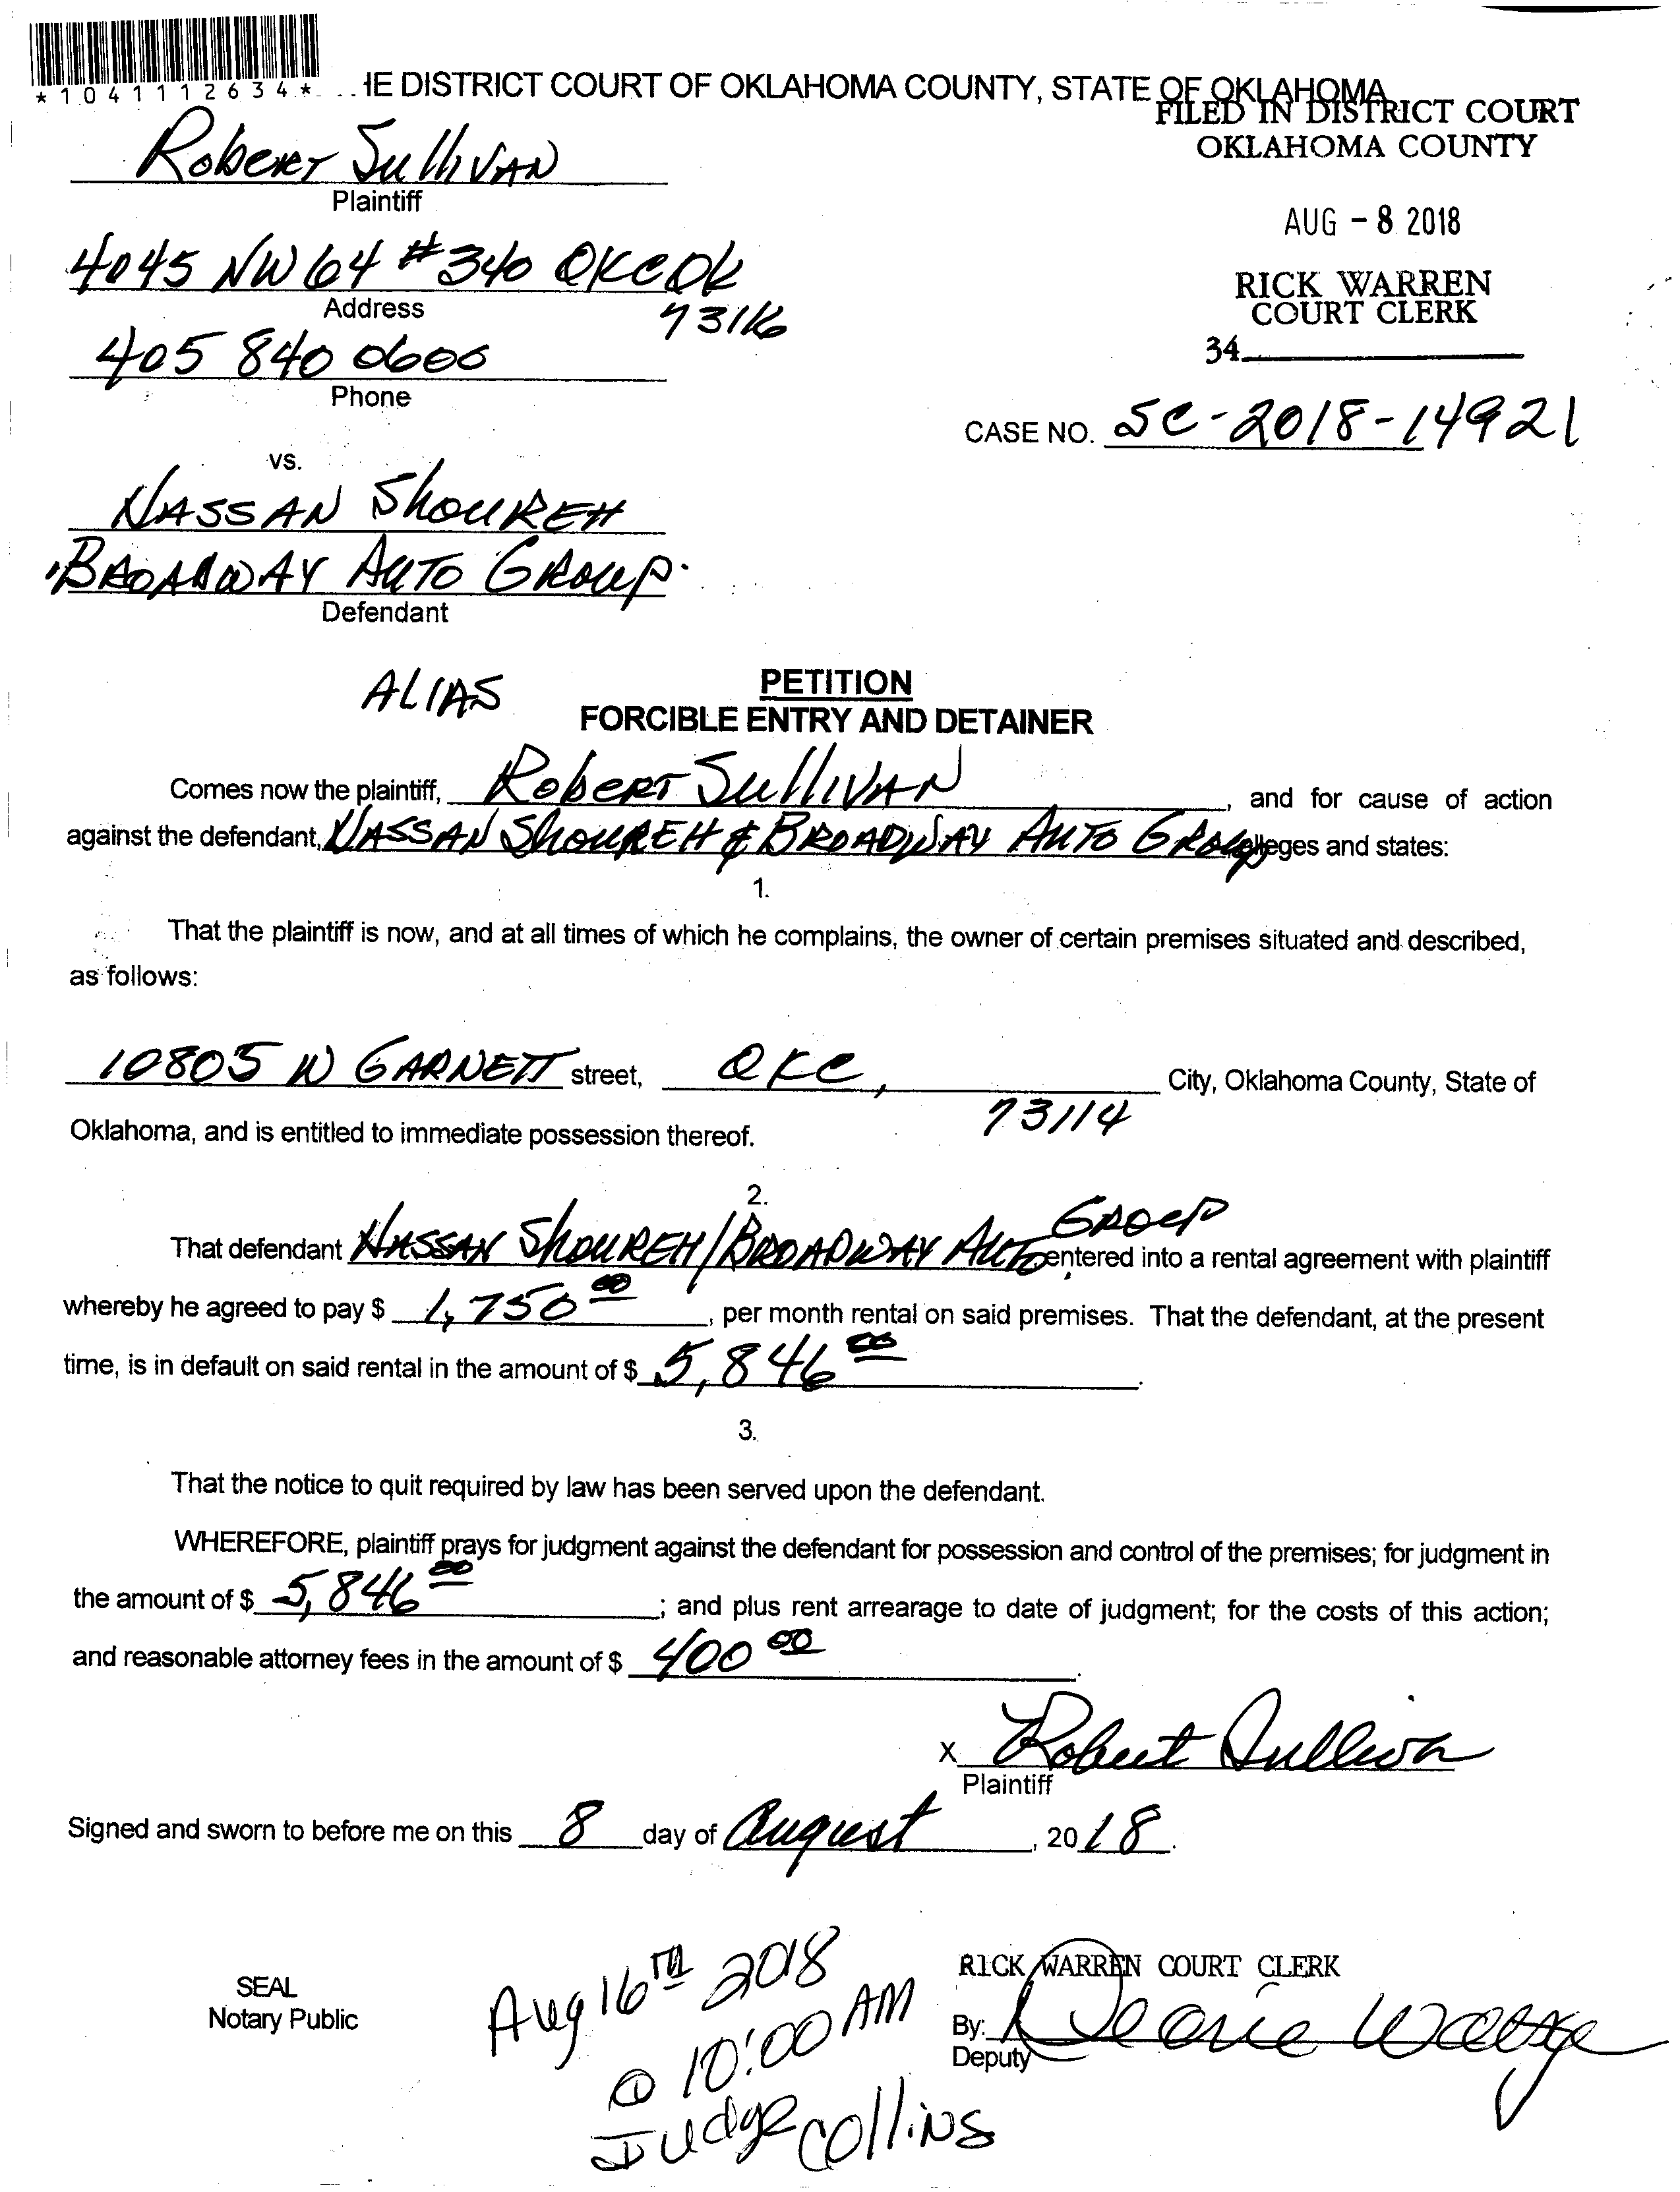 *1041112634*
IE DISTRICT COURT OF OKLAHOMA COUNTY, STATE OF OKLAHOMA
FILED IN DISTRICT COURT
OKLAHOMA COUNTY
Robert Sullivan
Plaintiff
AUG - 8 2018
4045 NW 64 # 340 OKC OK
Address
73116
RICK WARREN
COURT CLERK
34
405 840 0606
Phone
CASE NO. SC-2018-14921
vs.
HASSAN ShOUREH
BROADWAY AUTO GROUP
Defendant
ALIAS
PETITION
FORCIBLE ENTRY AND DETAINER
Comes now the plaintiff, Robert Sullivan, and for cause of action
against the defendant, HASSAN ShOUREH & BROADWAY AUTO GROUP alleges and states:
1.
That the plaintiff is now, and at all times of which he complains, the owner of certain premises situated and described,
as follows:
10805 N GARNETT street, OKC, City, Oklahoma County, State of
73114
Oklahoma, and is entitled to immediate possession thereof.
2.
That defendant HASSAN ShOUREH/BROADWAY AUTO GROUP entered into a rental agreement with plaintiff
whereby he agreed to pay $ 1,750 00, per month rental on said premises. That the defendant, at the present
time, is in default on said rental in the amount of $ 5,846 00.
3.
That the notice to quit required by law has been served upon the defendant.
WHEREFORE, plaintiff prays for judgment against the defendant for possession and control of the premises; for judgment in
the amount of $ 5,846 00; and plus rent arrearage to date of judgment; for the costs of this action;
and reasonable attorney fees in the amount of $ 400 00.
X Robert Sullivan
Plaintiff
Signed and sworn to before me on this 8 day of August, 2018.
SEAL
Notary Public
Aug 16TH 2018
@ 10:00 AM
Judge Collins
RICK WARREN COURT CLERK
By:
Deputy